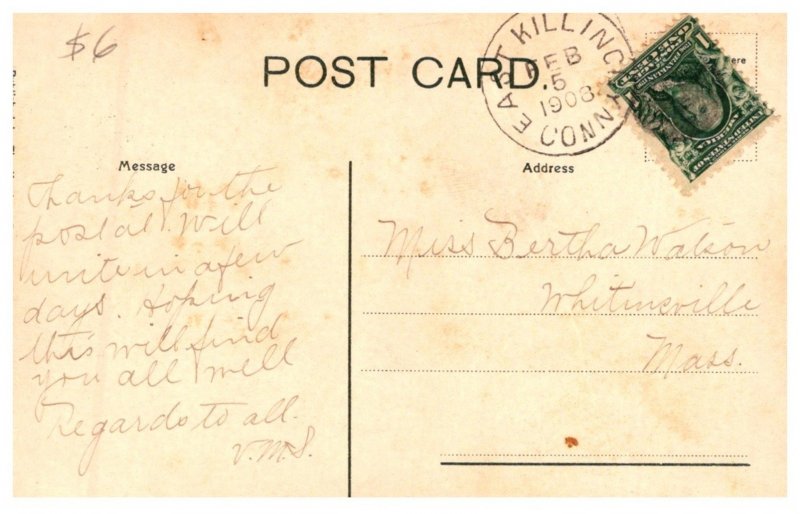 $6
POST CARD.
EAST KILLINGLY
FEB
5
1908
CONN
Message
Address
here
Thanks for the
postal. Will
write in a few
days. Hoping
this will find
you all well
Regards to all.
V.M.S.
Miss Bertha Watson
Whitinsville
Mass.